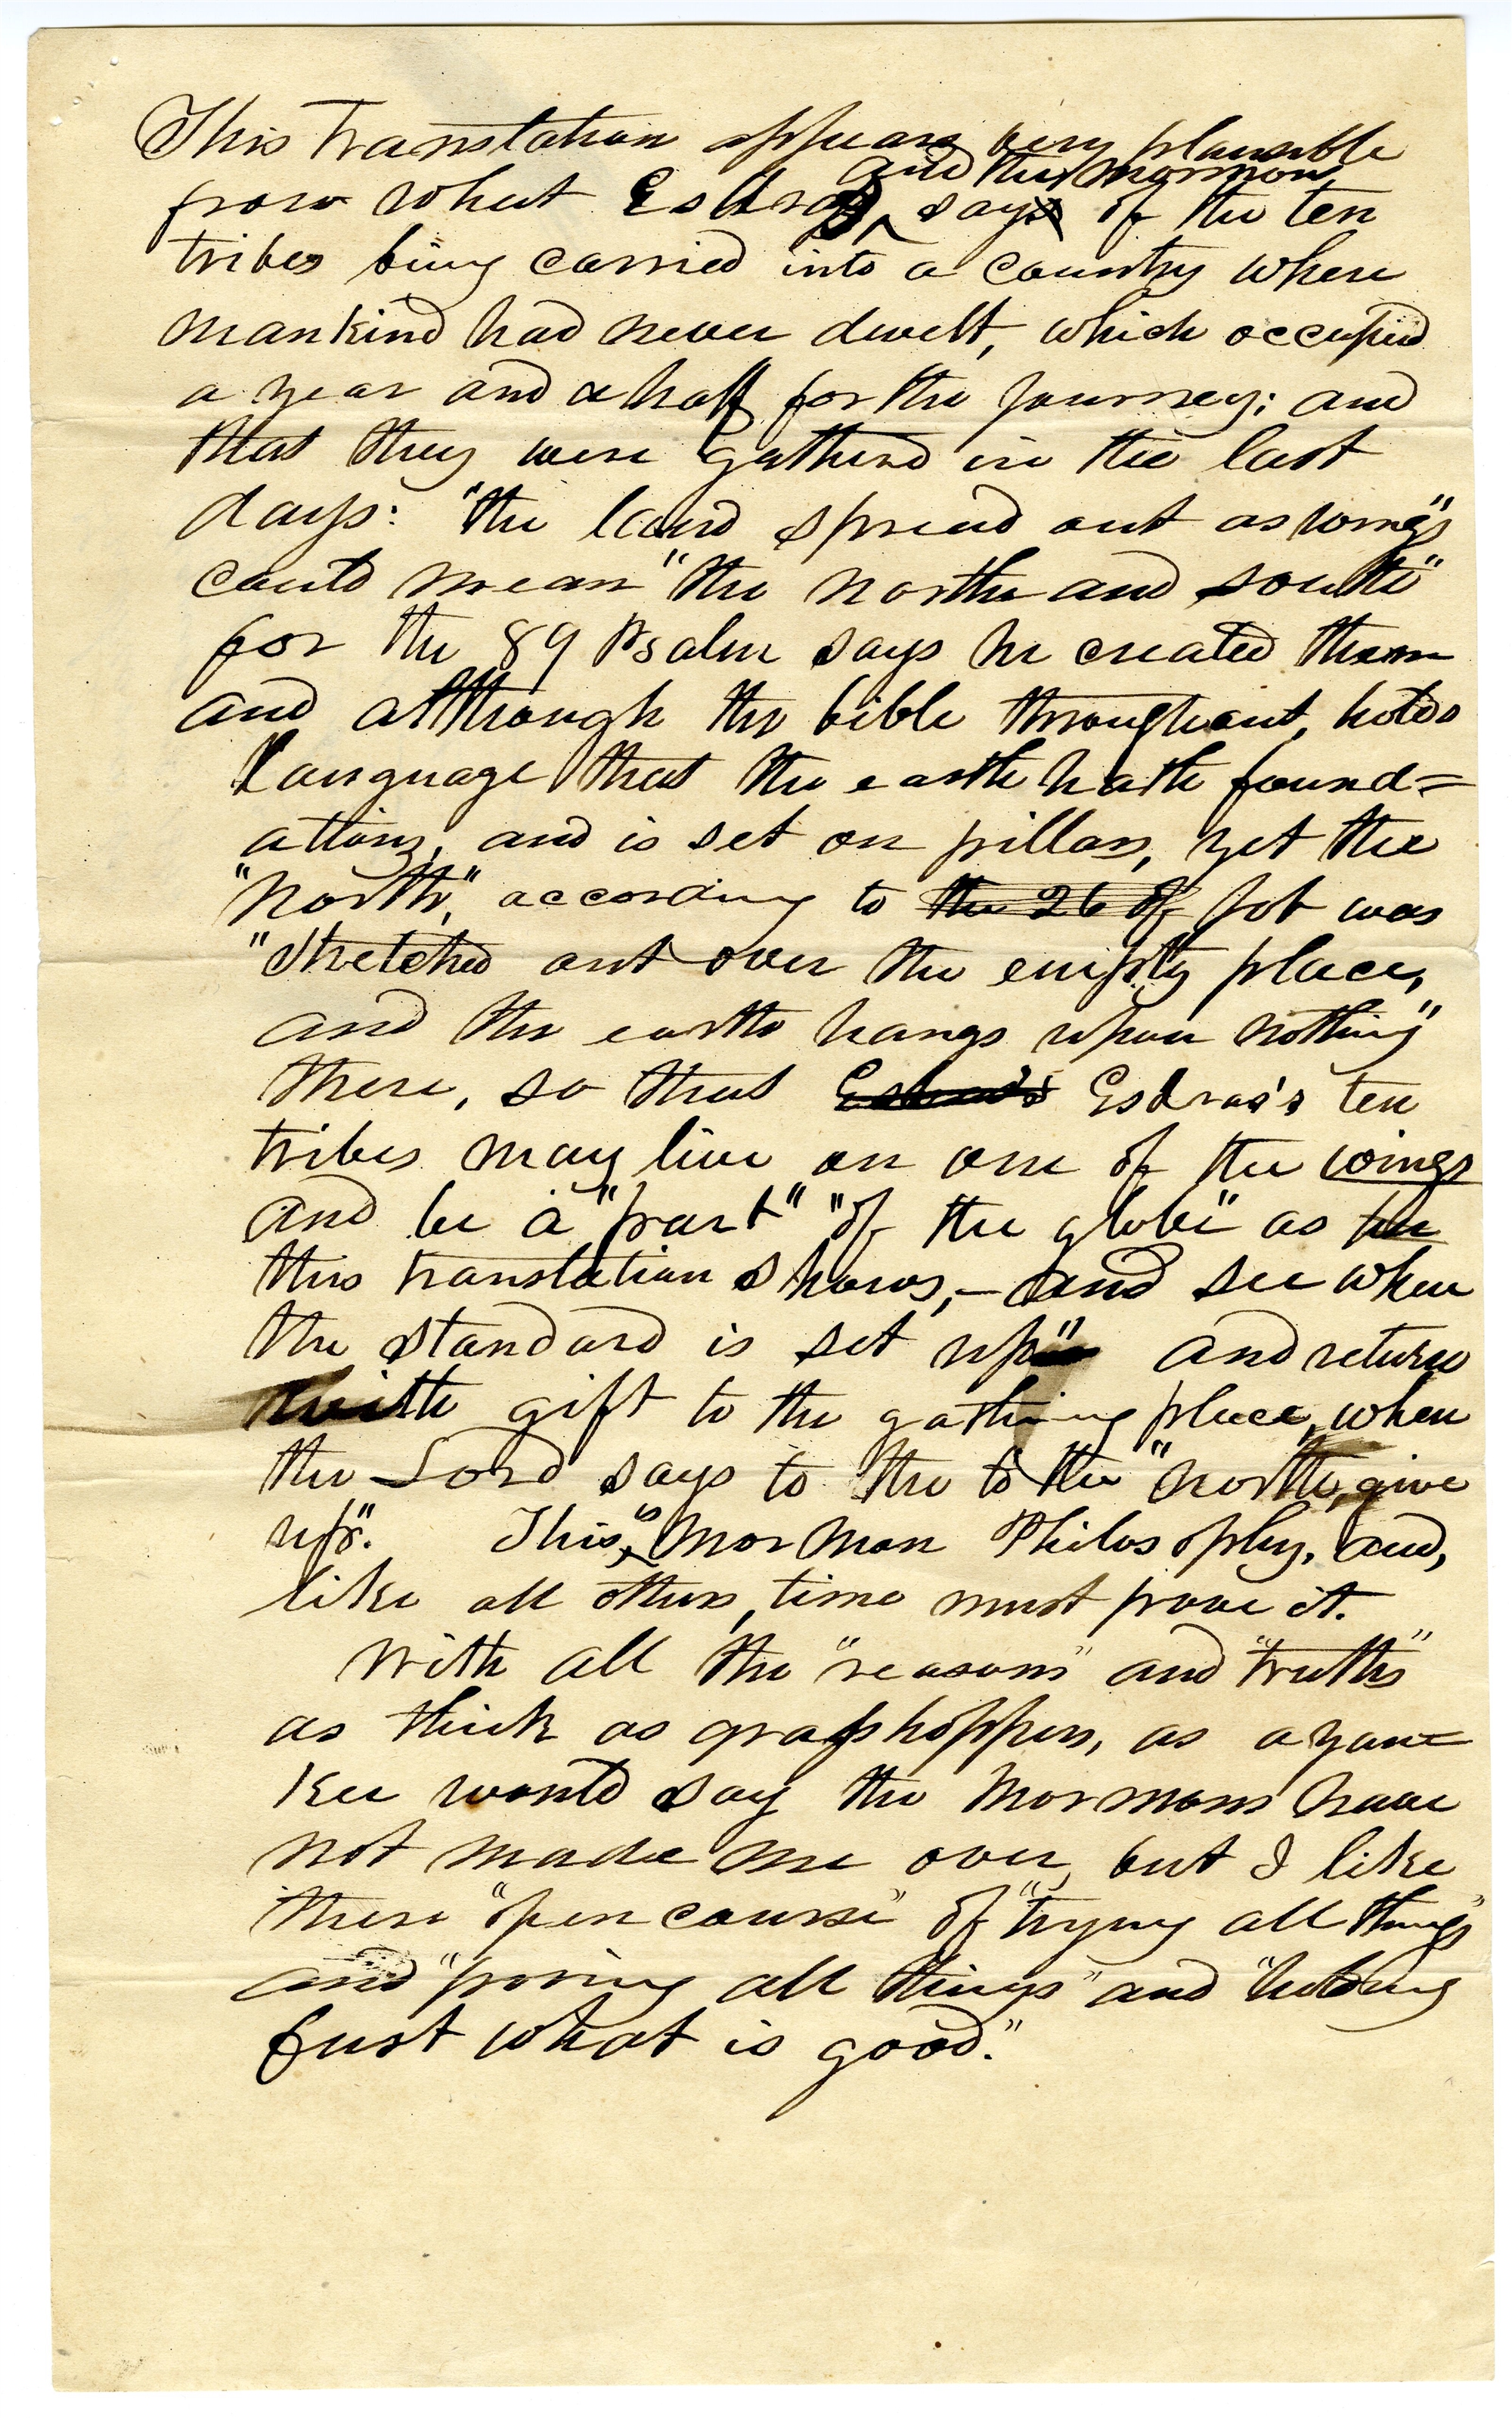 This Translation appears very plausible
and the Mormons
from what Esdras say of the ten
tribes being carried into a country where
mankind had never dwelt, which occupied
a year and a half for the journey; and
that they were gathered in the last
days: "the land spread out as wings"
could mean "the north and south"
for the 89 Psalm says he created them
and although the bible throughout, holds
language that the earth hath found=
ations, and is set on pillars, yet the
"North", according to the 26 of Job was
"Stretched out over the empty place,
and the earth hangs upon nothing"
there, so that Esdras's Esdras's ten
tribes may live on one of the wings
and be a "part" "of the globe" as the
this translation shows,— and see when
the standard is set up" and return
with gift to the gathering place, when
the Lord says to the to the "north, give
up". This, is Mormon Philosophy, and,
like all others, time must prove it.
With all the "reasons" and "truths"
as thick as grasshoppers, as a yan=
kee would say the Mormons have
not made me over, but I like
there "open course" of "trying all things"
and "proving all things" and "holding
fast what is good."